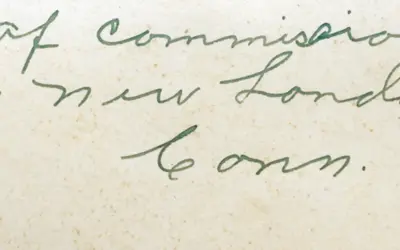 of commissio
New Lond
Conn.